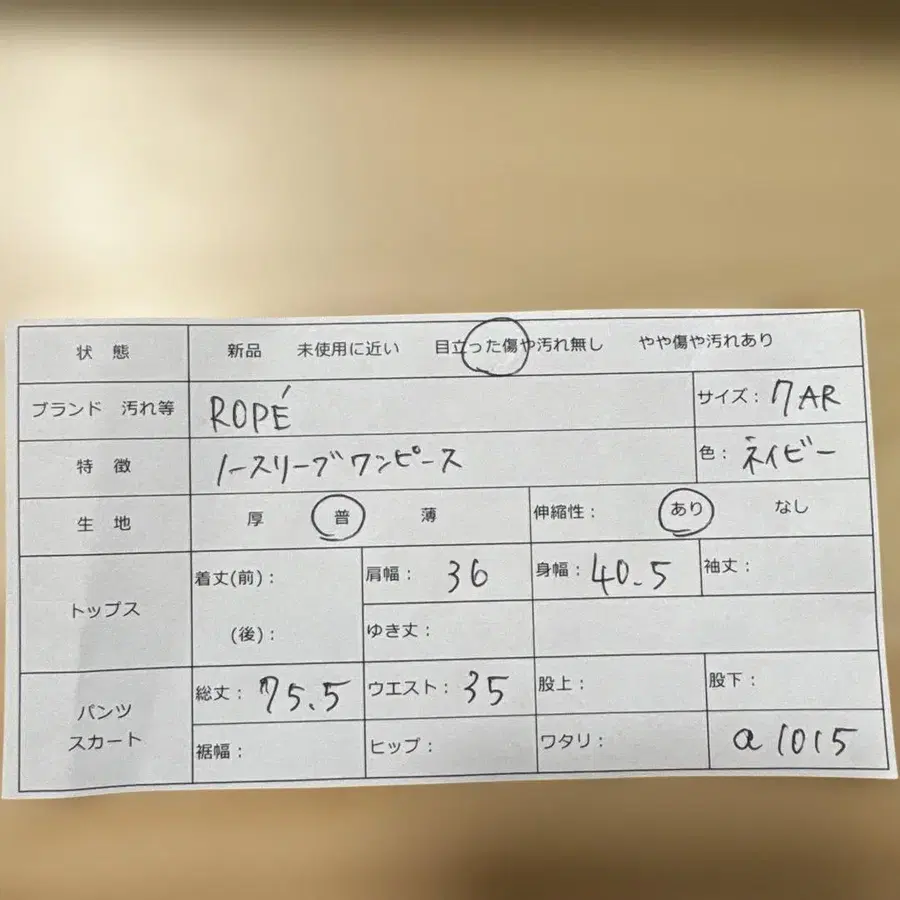 状 態 新品 未使用に近い 目立った傷や汚れ無し やや傷や汚れあり
ブランド 汚れ等 ROPÉ サイズ: 7AR
特 徴 ノースリーブワンピース 色: ネイビー
生 地 厚 普 薄 伸縮性: あり なし
トップス 着丈(前): 肩幅: 36 身幅: 40.5 袖丈:
(後): ゆき丈:
パンツ スカート 総丈: 75.5 ウエスト: 35 股上: 股下:
裾幅: ヒップ: ワタリ: a1015